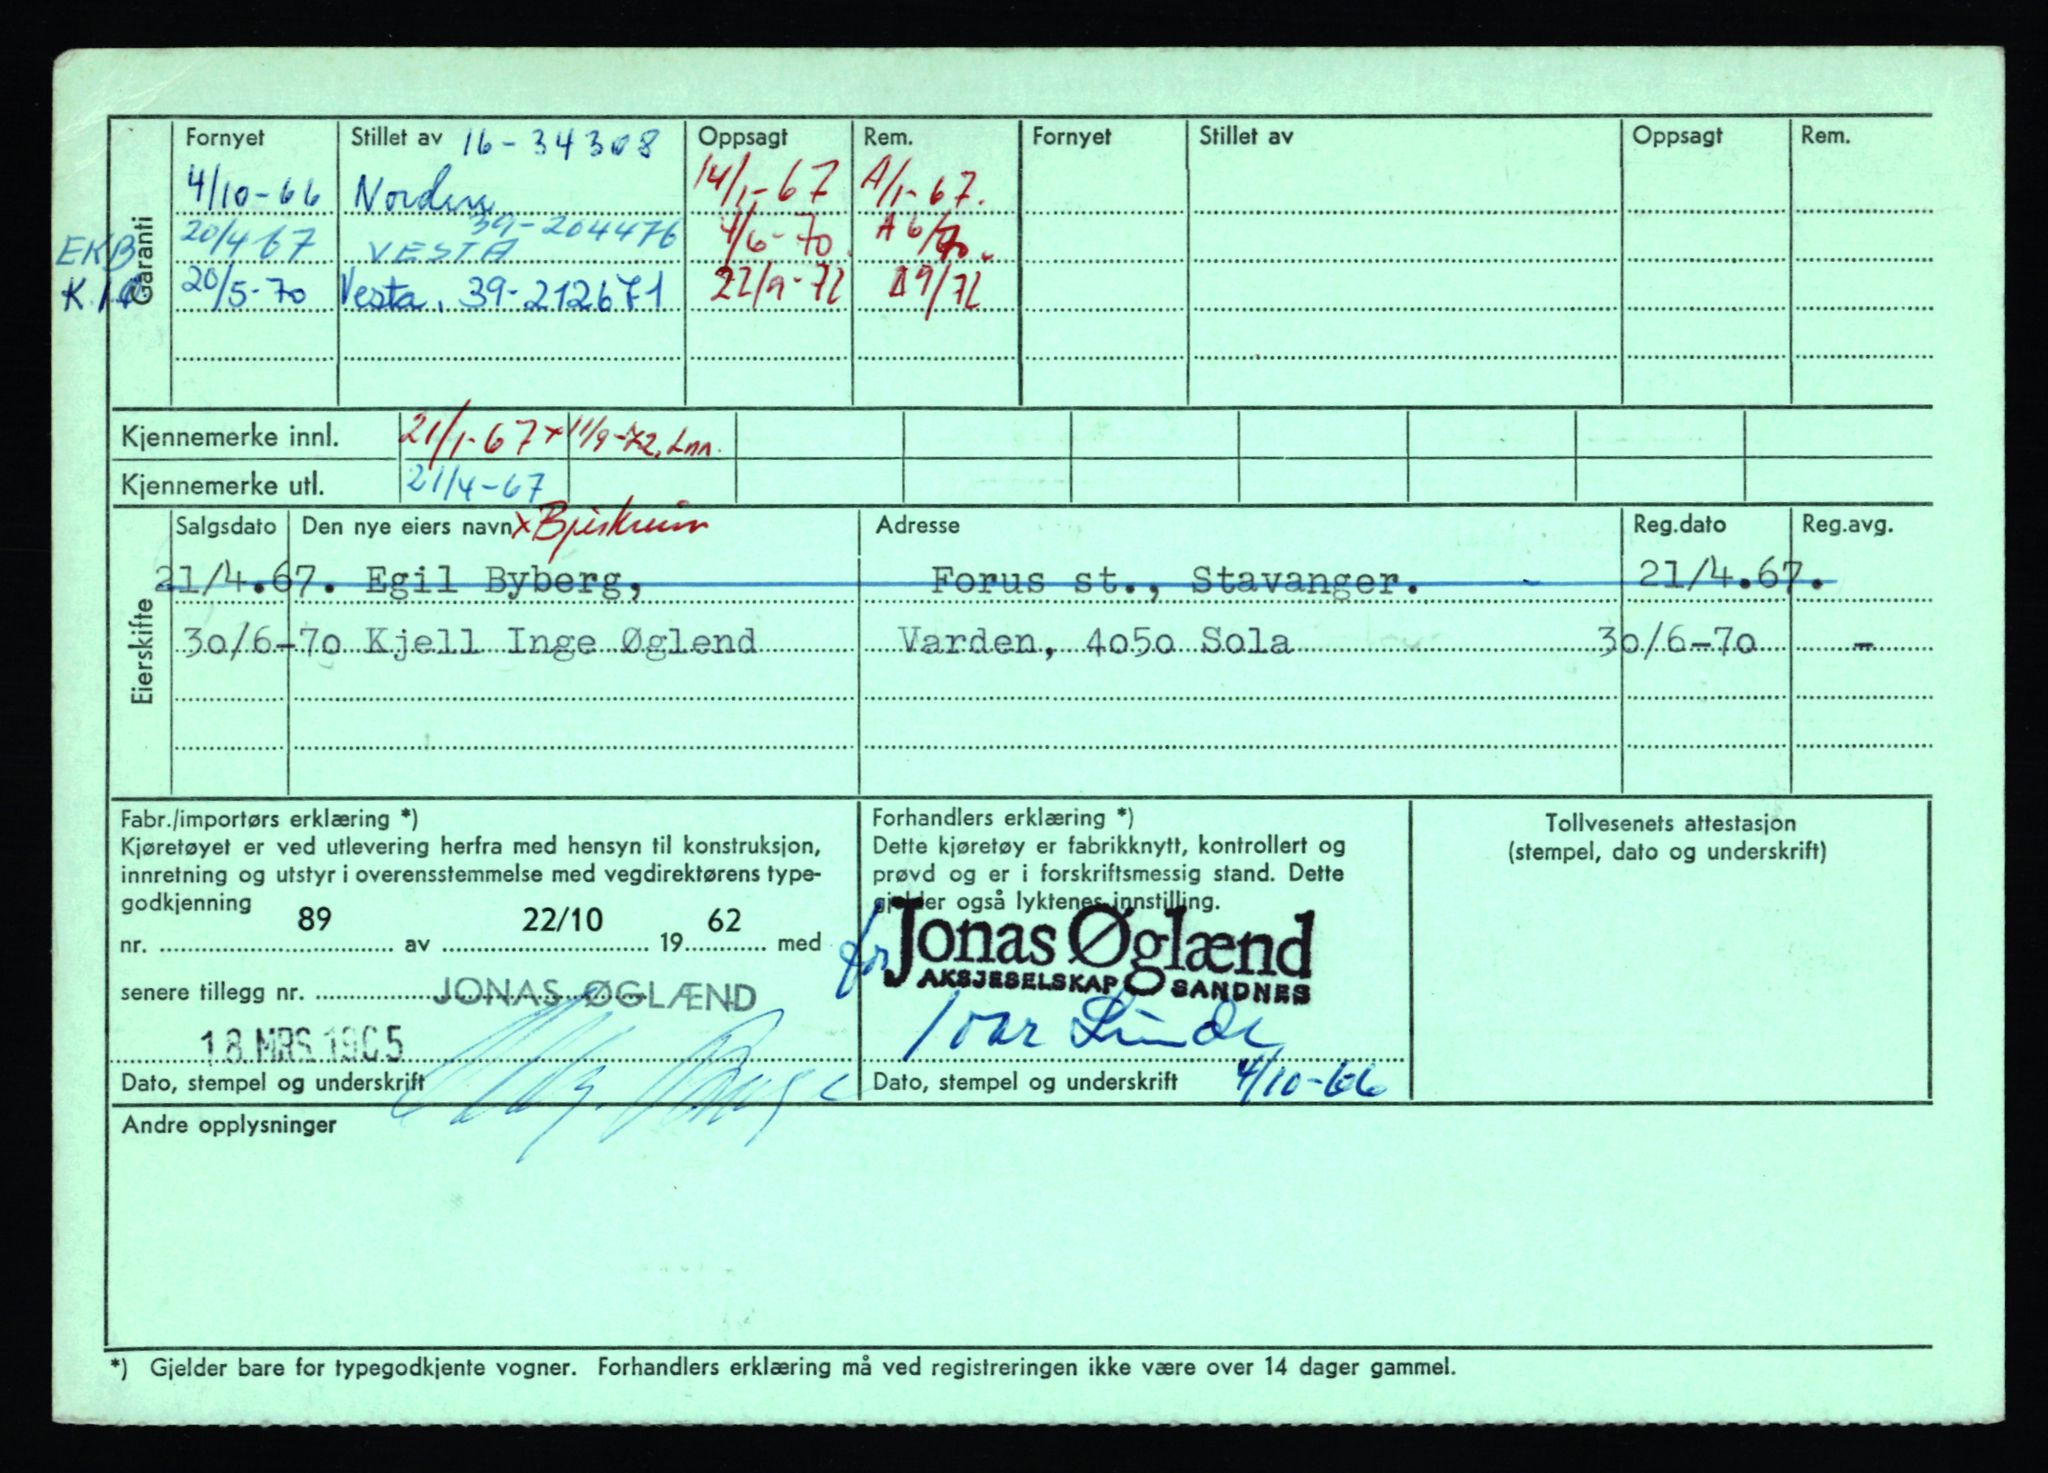 Garanti
Fornyet Stillet av 16-34308 Oppsagt Rem. Fornyet Stillet av Oppsagt Rem.
4/10-66 14/1-67 A/1-67.
20/4 67 39-204476 VESTA 4/6-70 A 6/70.
20/5-70 Vesta. 39-212671 22/9-72 A9/72
Kjennemerke innl. 21/1-67 x 11/9-72, Lnn.
Kjennemerke utl. 21/4-67
Eierskifte
Salgsdato Den nye eiers navn x Bjerkreim Adresse Reg.dato Reg.avg.
21/4.67. Egil Byberg, Forus st., Stavanger. 21/4.67.
30/6-70 Kjell Inge Øglend Varden, 4050 Sola 30/6-70 -
Fabr./importørs erklæring *)
Kjøretøyet er ved utlevering herfra med hensyn til konstruksjon,
innretning og utstyr i overensstemmelse med vegdirektørens type-
godkjenning
nr. 89 av 22/10 19 62 med
senere tillegg nr. JONAS ØGLÆND
18. MRS 1965
Dato, stempel og underskrift
Forhandlers erklæring *)
Dette kjøretøy er fabrikknytt, kontrollert og
prøvd og er i forskriftsmessig stand. Dette
gjelder også lyktenes innstilling.
for Jonas Øglænd
AKSJESELSKAP SANDNES
Ivar Linde
Dato, stempel og underskrift 4/10-66
Tollvesenets attestasjon
(stempel, dato og underskrift)
Andre opplysninger
*) Gjelder bare for typegodkjente vogner. Forhandlers erklæring må ved registreringen ikke være over 14 dager gammel.